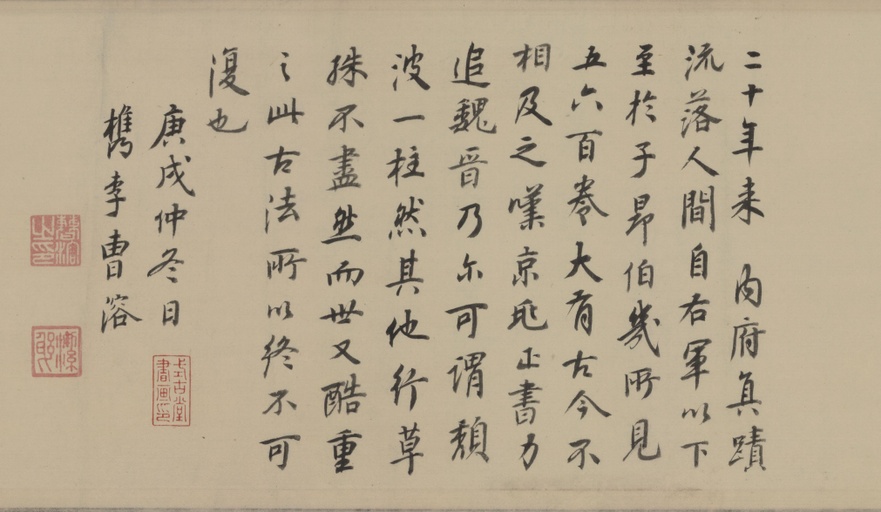 二十年来 内府真蹟
流落人間自右軍以下
至於子昂伯幾所見
五六百卷大有古今不
相及之嘆京兆正書力
追魏晉乃尓可謂頹
波一柱然其他行草
殊不盡然而世又酷重
之此古法所以終不可
復也
庚戌仲冬日
檇李曹溶
式古堂書画印